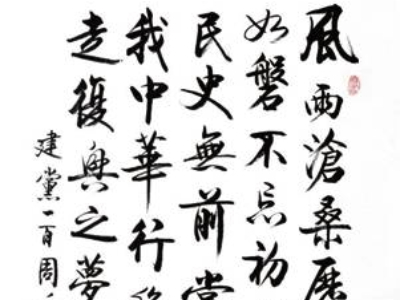 風雨滄桑歷
如磐不忘初
民史無前當
我中華行
走復興之夢
建黨一百周